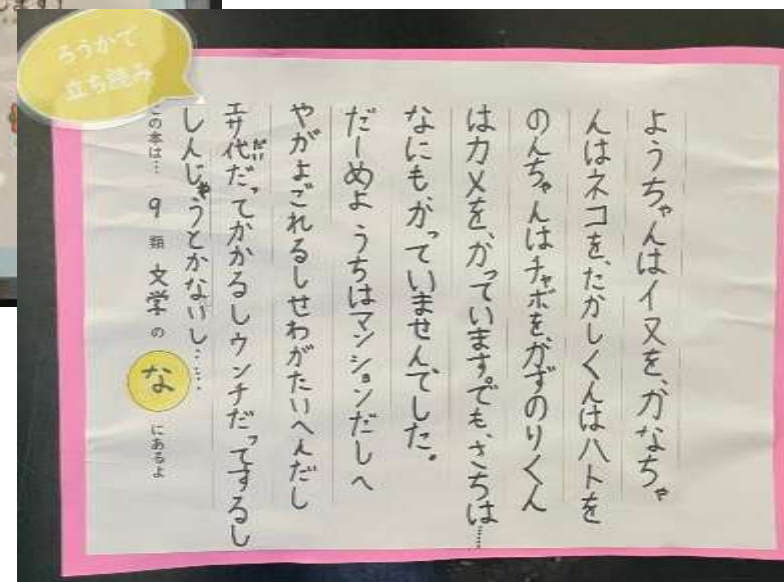 ろうかで
立ち読み
ようちゃんはイヌを、かなちゃ
んはネコを、たかしくんはハトを
のんちゃんはチャボを、かずのりくん
はカメを、かっています。でも、さちは……
なにもかっていませんでした。
だーめよ うちはマンションだしへ
やがよごれるしせわがたいへんだし
エサ代だってかかるしウンチだってするし
だい
しんじゃうとかないし……
この本は… 9 類 文学 の な にあるよ